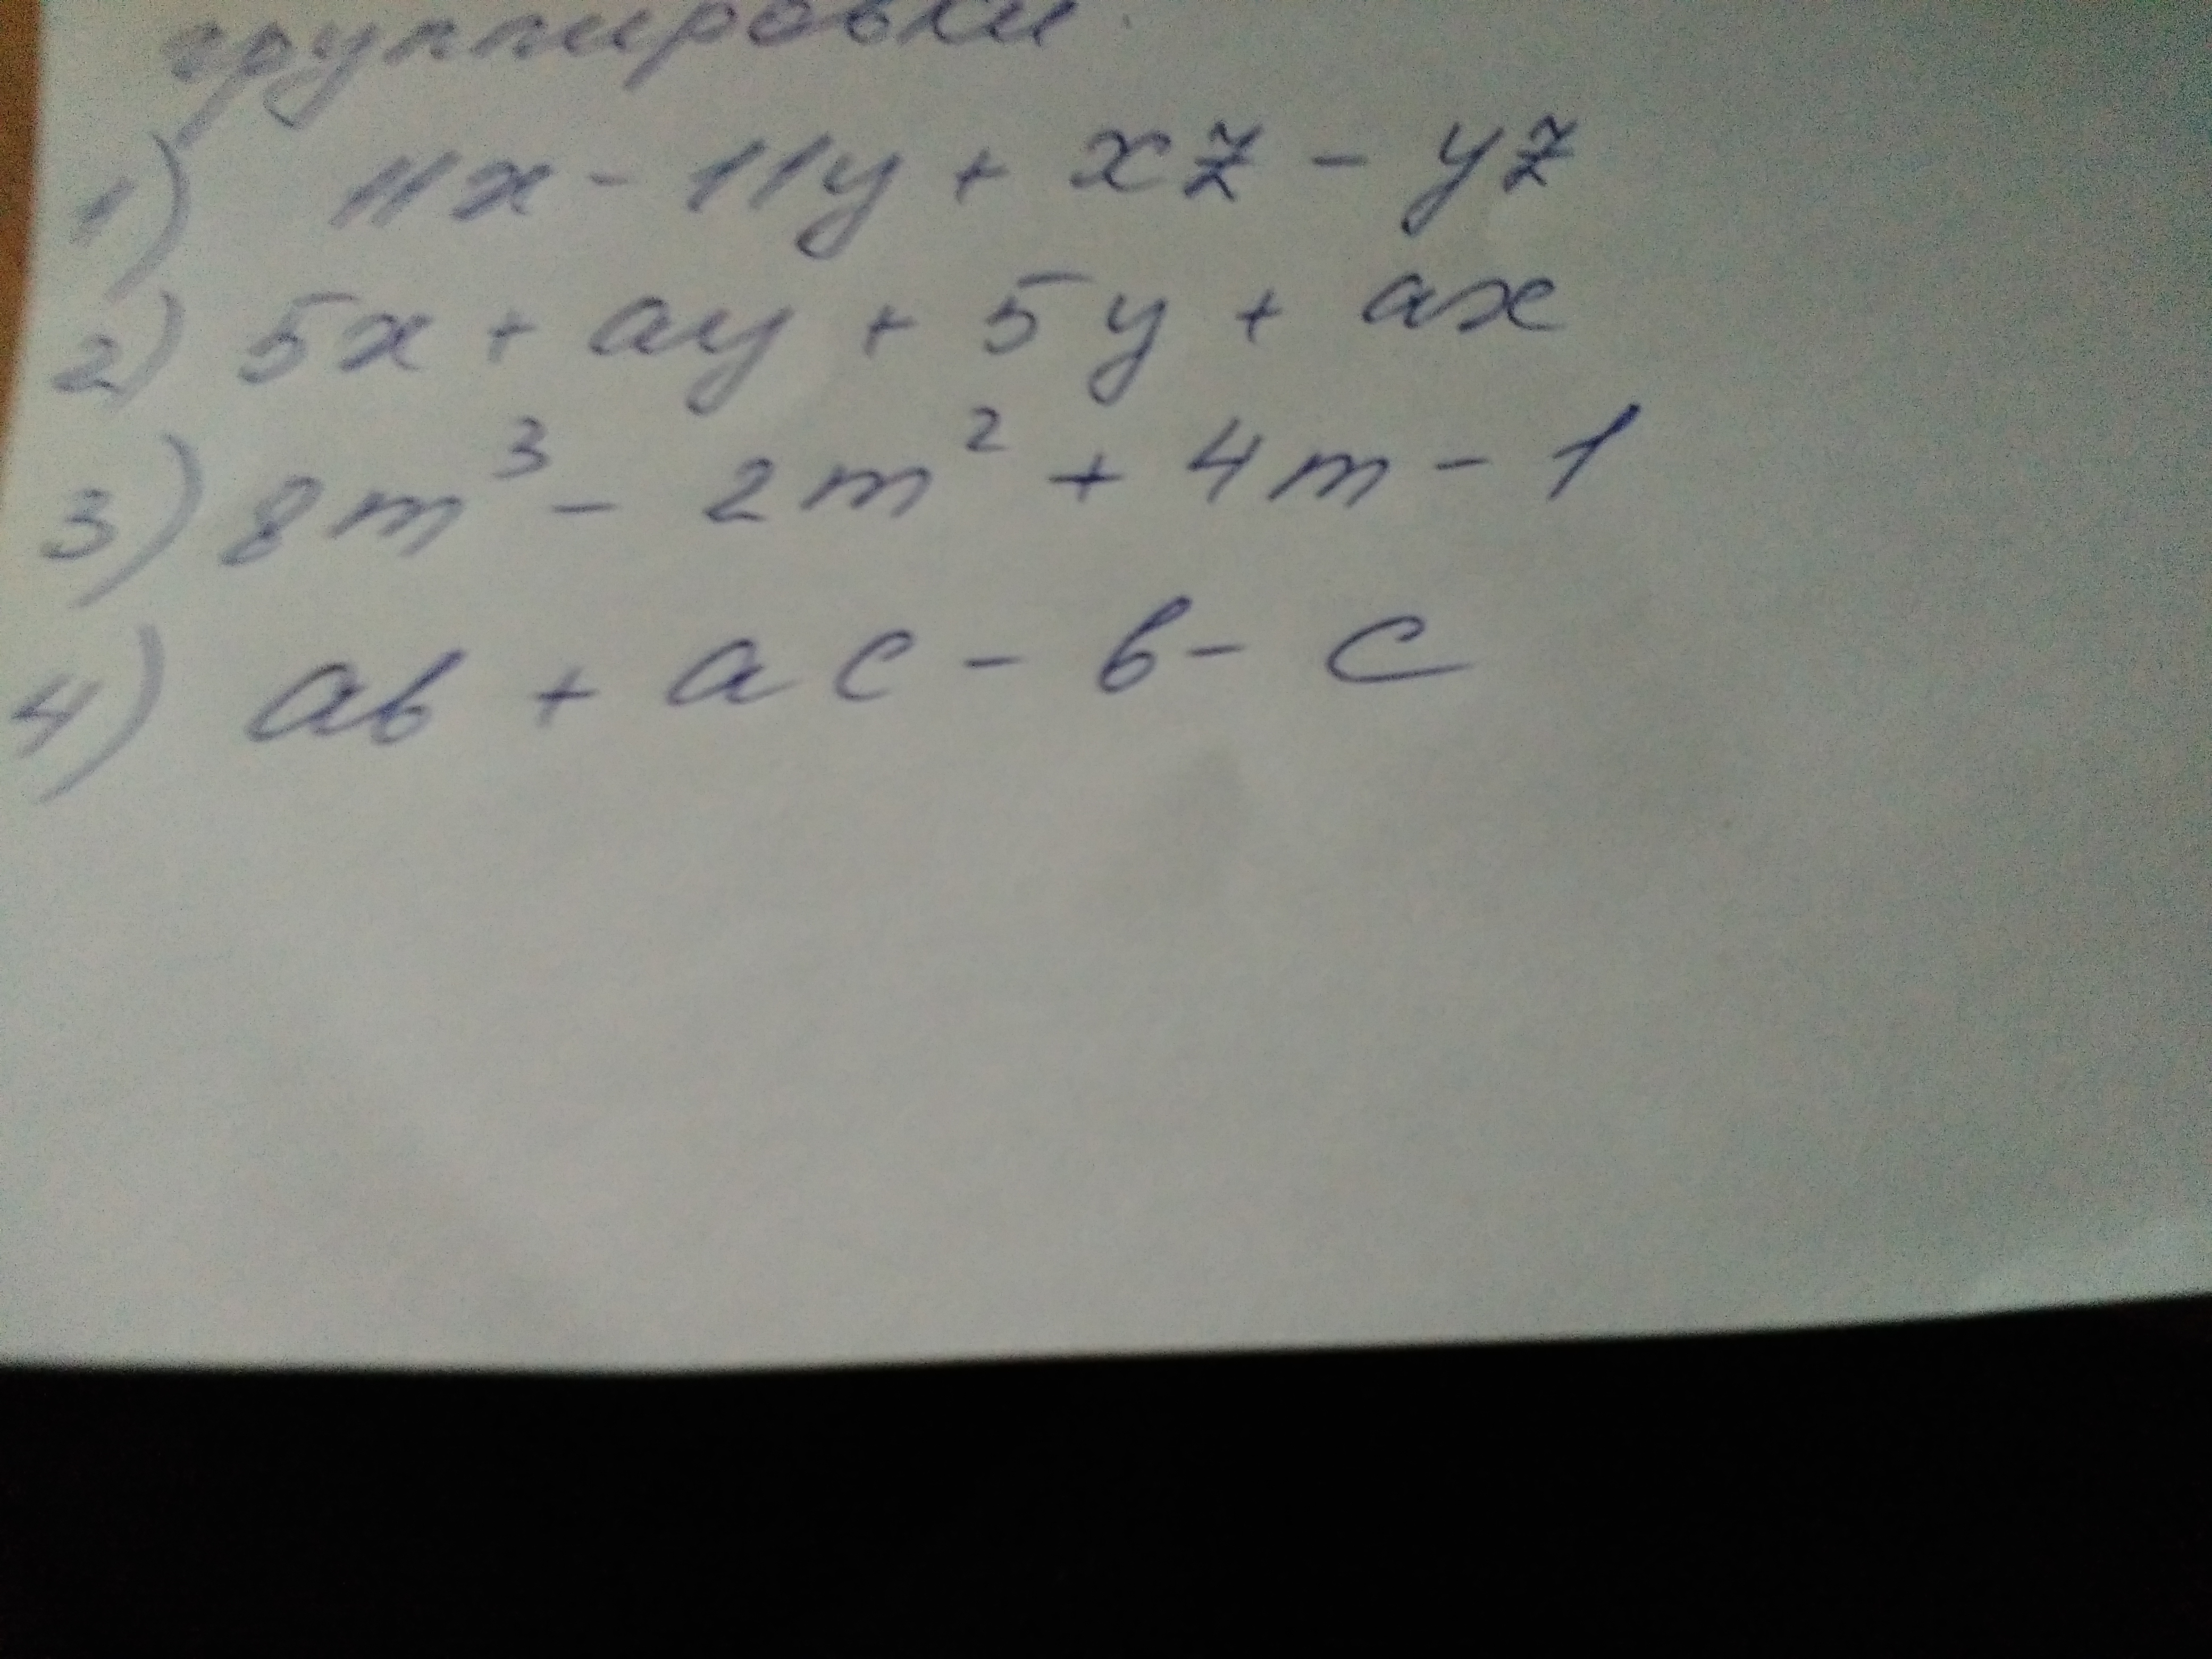 группировки.
1) 11x - 11y + xz - yz
2) 5x + ay + 5y + ax
3) 8m³ - 2m² + 4m - 1
4) ab + ac - b - c